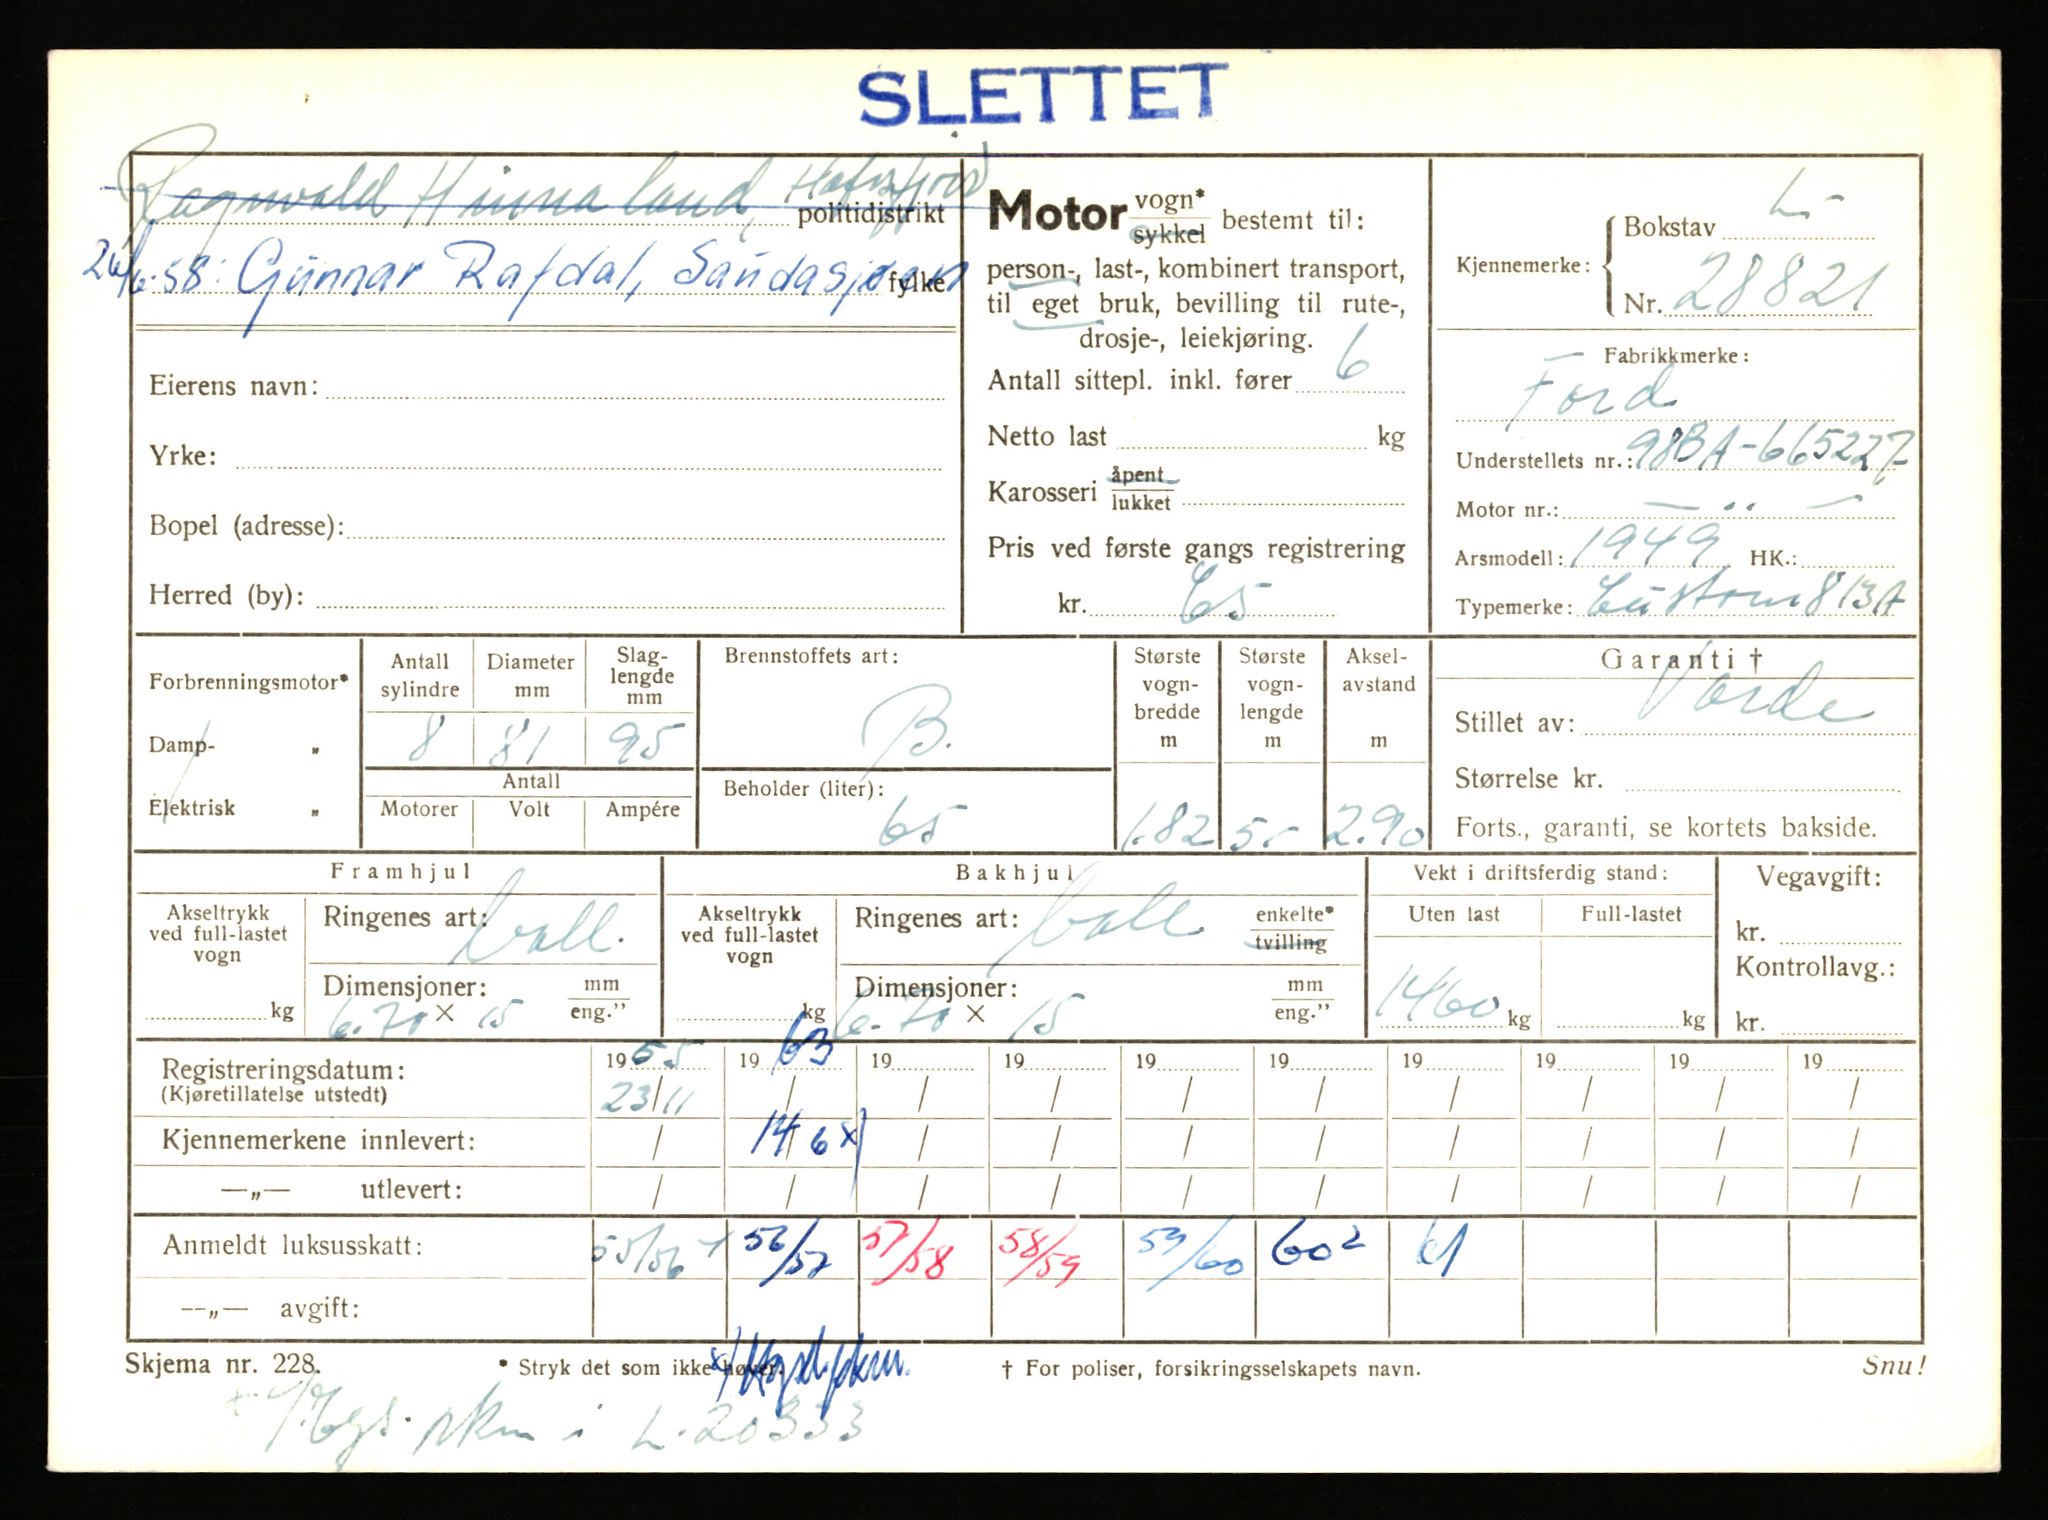 SLETTET
Ragnvald Hinnaland, Hafrsfjord
politidistrikt
26/6-58: Gunnar Rafdal, Sandasjøen
fylke
Eierens navn:
Yrke:
Bopel (adresse):
Herred (by):
Motor vogn* sykkel bestemt til:
person-, last-, kombinert transport,
til eget bruk, bevilling til rute-,
drosje-, leiekjøring.
Antall sittepl. inkl. fører 6
Netto last kg
Karosseri åpent lukket
Pris ved første gangs registrering
kr. 65
Kjennemerke: Bokstav L-
Nr. 28821
Fabrikkmerke:
Ford
Understellets nr.: 98BA-665227
Motor nr.: — " —
Arsmodell: 1949 HK.:
Typemerke: Custom 8 13A
Forbrenningsmotor*
Damp- „
Elektrisk „
Antall sylindre
8
Diameter mm
81
Slag-lengde mm
95
Antall
Motorer Volt Ampére
Brennstoffets art:
B.
Beholder (liter):
65
Største vogn-bredde m
1.82
Største vogn-lengde m
5.-
Aksel-avstand m
2.90
Garanti †
Stillet av: Vorde
Størrelse kr.
Forts., garanti, se kortets bakside.
Framhjul
Akseltrykk ved full-lastet vogn
kg
Ringenes art: ball.
Dimensjoner: mm eng."
6.70 × 15
Bakhjul
Akseltrykk ved full-lastet vogn
kg
Ringenes art: ball enkelte* tvilling
Dimensjoner: mm eng."
6.70 × 15
Vekt i driftsferdig stand:
Uten last Full-lastet
1460 kg kg
Vegavgift:
kr.
Kontrollavg.:
kr.
Registreringsdatum: 1955 1963 19 19 19 19 19 19 19 19
(Kjøretillatelse utstedt) 23/11 / / / / / / / / /
Kjennemerkene innlevert: / 14/6 x / / / / / / / /
—„— utlevert: / / / / / / / / / /
Anmeldt luksusskatt: 55/56 + 56/57 57/58 58/59 59/60 60² 61
—„— avgift:
Skjema nr. 228. * Stryk det som ikke høver. † For poliser, forsikringsselskapets navn. Snu!
skm i L-20333